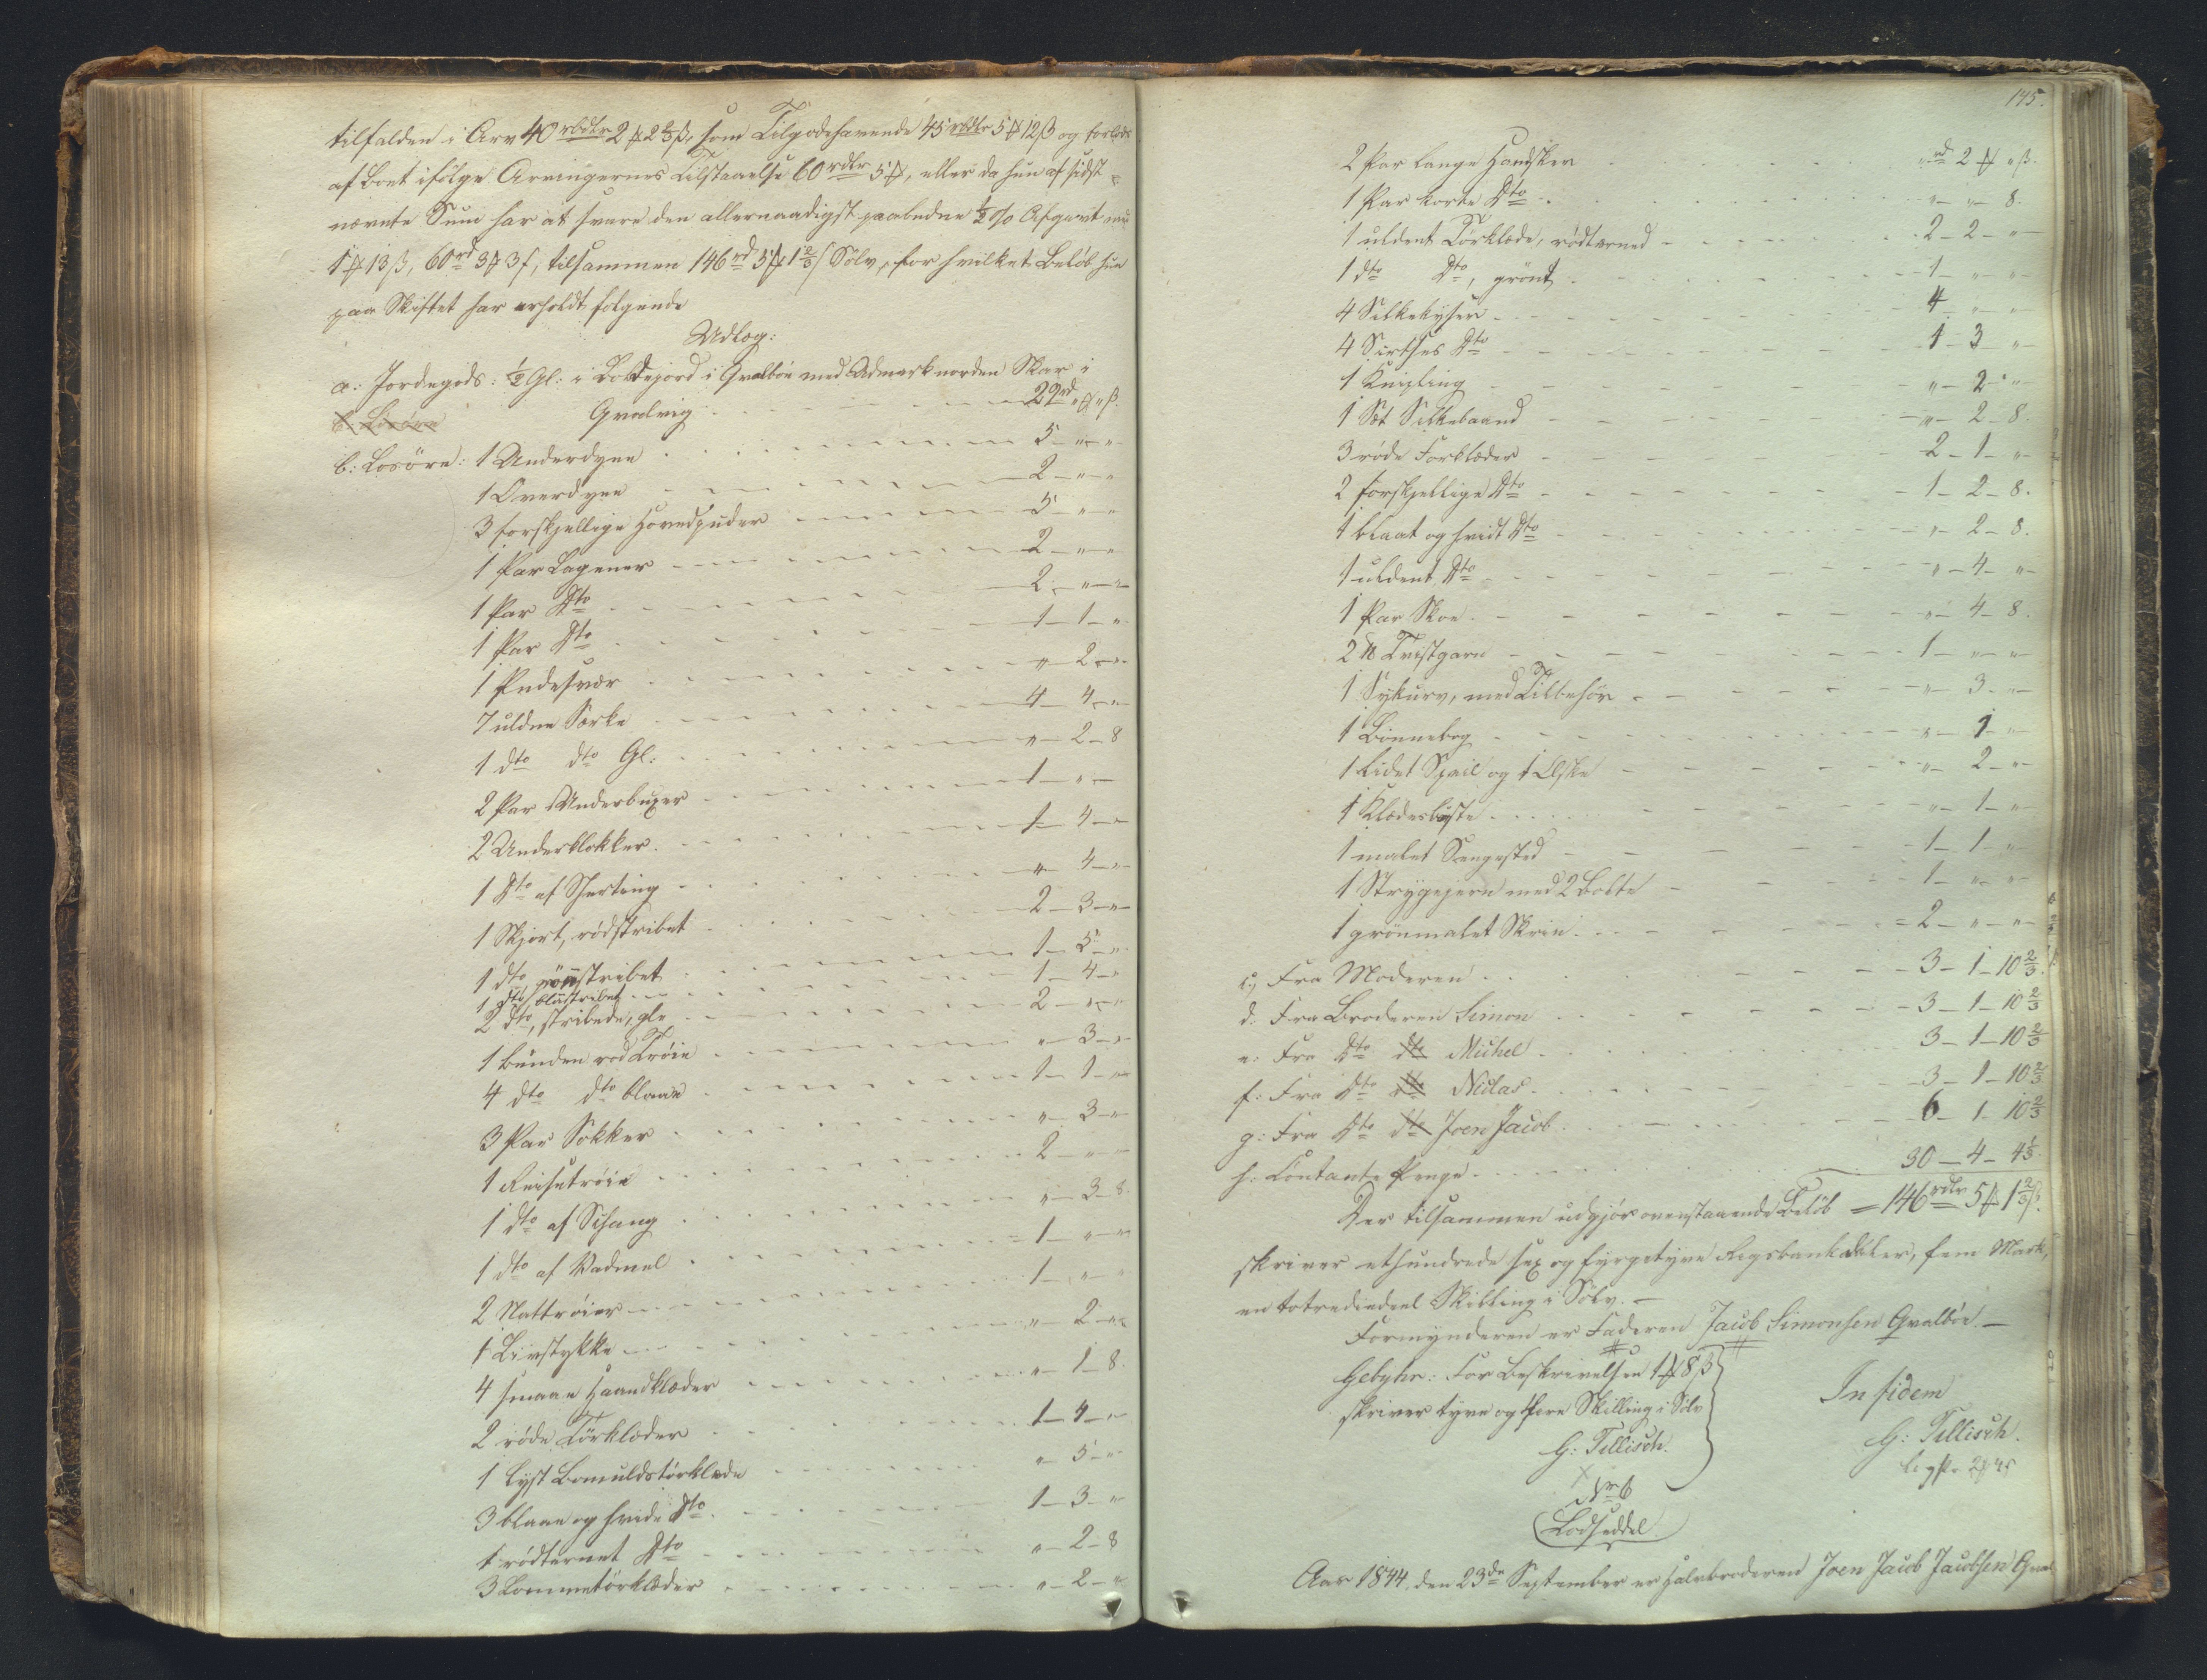 tilfalden i Arv 40 rbdlr 2 ℳ 2 2/3 ß, som Tilgodehavende 45 rbdlr 5 ℳ 12 ß og forlods
af Boet ifølge Arvingernes Tilstaaelse 60 rdlr 5 ℳ, eller da hun af sidst
nævnte Sum har at svare den allernaadigst paabudne ½ % Afgivt med
1 ℳ 13 ß, 60 rd 3 ℳ 3 ß, tilsammen 146 rd 5 ℳ 1 2/3 ß Sølv, for hvilket Beløb hun
paa Skiftet har erholdt følgende
Udlæg:
a: Jordegods: ½ Gl: i Qvalbøe med Udmark norden Skar i
b: Løsøre Qvalvig 29 rd " ℳ " ß.
b: Løsøre: 1 Underdyne 5 - " - "
1 Overdyne 2 - " - "
3 forskjellige Hovedpuder 5 - " - "
1 Par Lagener 2 - " - "
1 Par Dto 2 - " - "
1 Par Dto 1 - 1 - "
1 Pudesvær " - 2 - "
7 uldne Særke 4 - 4 - "
1 dto dto Gl: " - 2 - 8
2 Par Underbuxer 1 - " -
2 Underklokker 1 - 4 - "
1 Dto af Sherting " - 4 - "
1 Skjort, rødstribet 2 - 3 - "
1 dto, grønstribet 1 - 5 - "
1 dto, blaastribet 1 - 4 - "
2 dto, stribede, gle 2 - " - "
1 bunden rød Trøie " - 3 - "
4 dto dto blaae 1 - 1 - "
3 Par Sokker " - 3 - "
1 Reisetrøie 2 - " - "
1 dto af Sihang " - 3 - 8
1 dto af Vadmel 1 - " - "
2 Nattrøier 1 - " - "
1 Livstykke " - 2 - "
4 smaae Haandklæder " - 1 - 8.
2 røde Tørklæder 1 - 4 - "
1 lyst Bomuldstørklæde " - 5 - "
3 blaae og hvide Dto 1 - 3 - "
1 rødternet Dto " - 2 - 8
3 Lommetørklæder " - 2 - "
145.
2 Par lange Handsker " rd 2 ℳ " ß.
1 Par korte Dto " - " - 8.
1 uldent Tørklæde, rødterned 2 - 2 - "
1 dto Dto, grønt 1 - " - "
4 Silkekyser 4 - " - "
4 Sirtses Dto 1 - 3 - "
1 Knipling " - 2 - "
1 Sæt Silkebaand " - 2 - 8.
3 røde Forklæder 2 - 1 - "
2 forskjellige Dto 1 - 2 - 8.
1 blaat og hvidt Dto " - 2 - 8.
1 uldent Dto " - 4 - "
1 Par Skoe " - 4 - 8.
2 ℔ Tvistgarn 1 - " - "
1 Sykurv, med Tilbehør " - 3 - "
1 Bønnebog " - 1 - "
1 lidet Speil og 1 Æske " - 2 - "
1 Klædesbøste " - 1 - "
1 malet Sengested 1 - 1 - "
1 Strygejern med 2 Bolte 1 - " - "
1 grønmalet Skrin 2 - " - "
c, Fra Moderen 3 - 1 - 10 2/3.
d: Fra Broderen Simon 3 - 1 - 10 2/3
e: Fra Dto dto Michel 3 - 1 - 10 2/3
f: Fra Dto dto Niclas 3 - 1 - 10 2/3
g: Fra Dto dto Joen Jacob 6 - 1 - 10 2/3
h: Contante Penge 30 - 4 - 4 1/3.
Der tilsammen udgjør ovenstaaende Beløb = 146 rdlr 5 ℳ 1 2/3 ß.
skriver ethundrede sex og fyrgetyve Rigsbankdaler, fem Mark,
en totrediedeel Skilling i Sølv. —
Formynderen er Faderen Jacob Simonsen Qvalbøe. —
Gebyhr: For Beskrivelsen 1 ℳ 8 ß
skriver tyve og fire Skilling i Sølv
G: Tillisch.
In fidem
G: Tillisch.
Lodseddel
Aar 1844, den 23de September er Halvbroderen Joen Jacob Jacobsen Qval